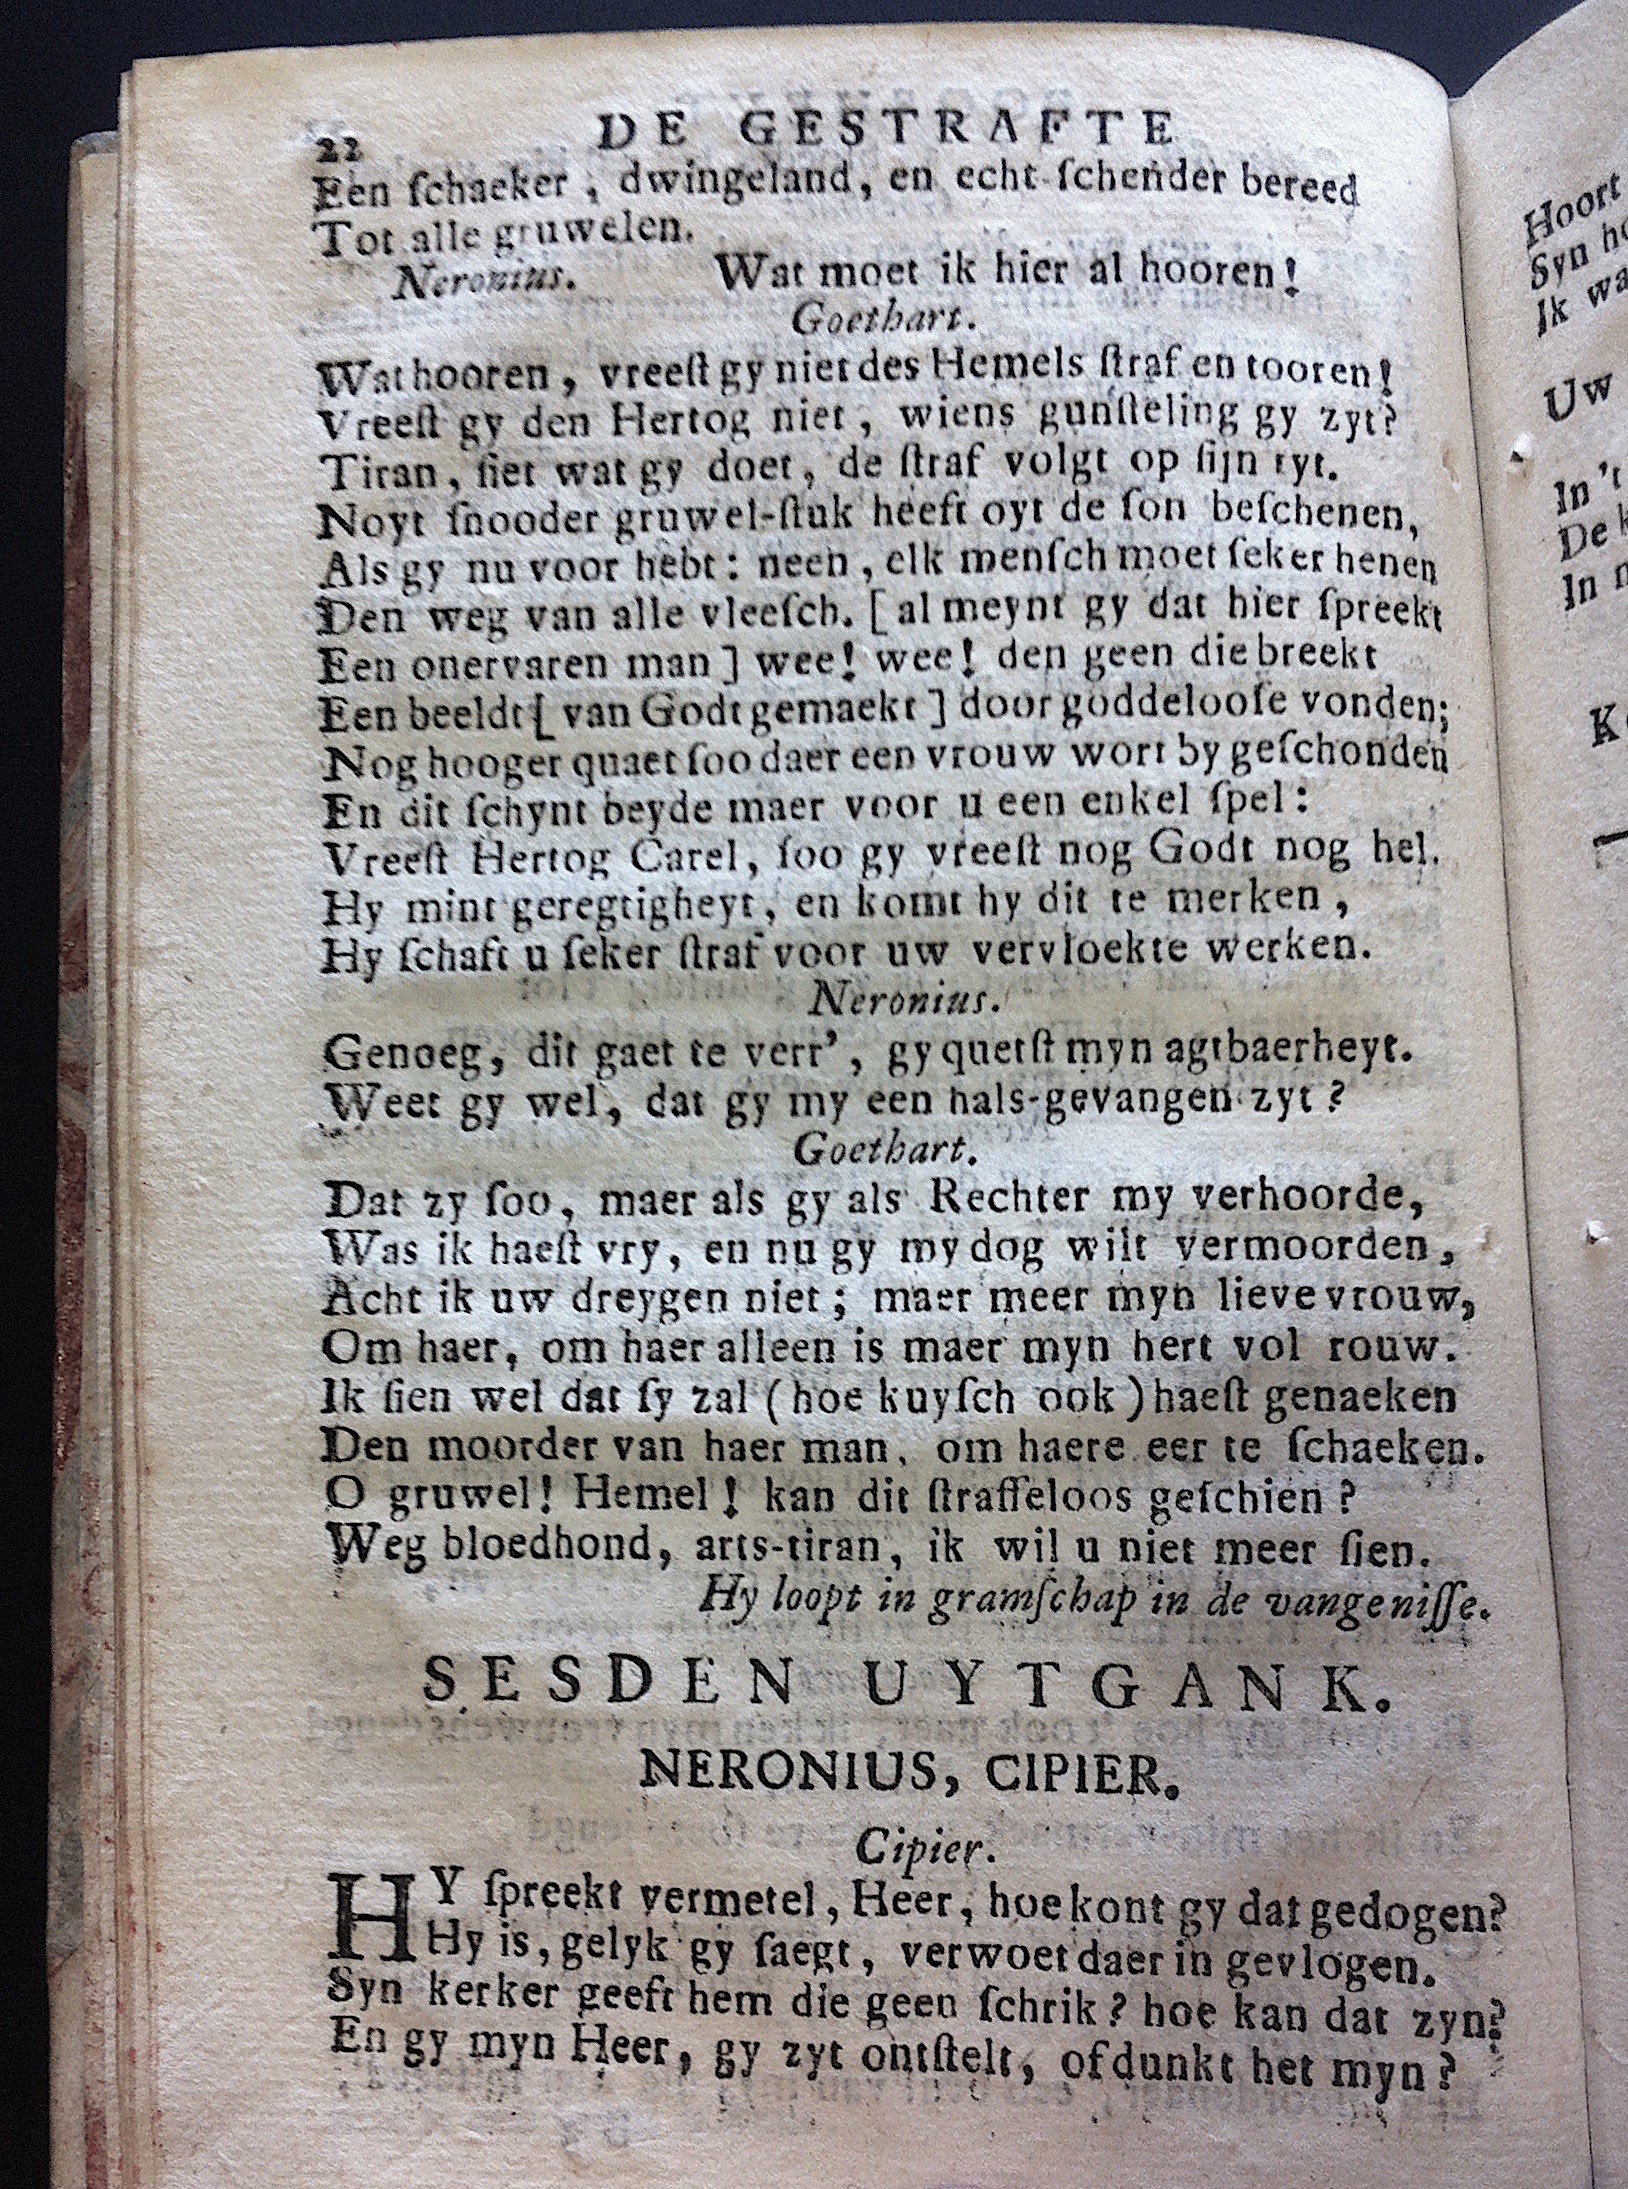 22 DE GESTRAFTE
Een ſchaeker, dwingeland, en echt-ſchender bereed
Tot alle gruwelen.
Neronius. Wat moet ik hier al hooren!
Goethart.
Wat hooren, vreeſt gy niet des Hemels ſtraf en tooren!
Vreeſt gy den Hertog niet, wiens gunſteling gy zyt?
Tiran, ſiet wat gy doet, de ſtraf volgt op ſijn tyt.
Noyt ſnooder gruwel-ſtuk heeft oyt de ſon beſchenen,
Als gy nu voor hebt: neen, elk menſch moet ſeker henen
Den weg van alle vleeſch. [al meynt gy dat hier ſpreekt
Een onervaren man] wee! wee! den geen die breekt
Een beeldt [van Godt gemaekt] door goddelooſe vonden;
Nog hooger quaet ſoo daer een vrouw wort by geſchonden
En dit ſchynt beyde maer voor u een enkel ſpel:
Vreeſt Hertog Carel, ſoo gy vreeſt nog Godt nog hel.
Hy mint geregtigheyt, en komt hy dit te merken,
Hy ſchaft u ſeker ſtraf voor uw vervloekte werken.
Neronius.
Genoeg, dit gaet te verr', gy quetſt myn agtbaerheyt.
Weet gy wel, dat gy my een hals-gevangen zyt?
Goethart.
Dat zy ſoo, maer als gy als Rechter my verhoorde,
Was ik haeſt vry, en nu gy my dog wilt vermoorden,
Acht ik uw dreygen niet; maer meer myn lieve vrouw,
Om haer, om haer alleen is maer myn hert vol rouw.
Ik ſien wel dat ſy zal (hoe kuyſch ook) haeſt genaeken
Den moorder van haer man, om haere eer te ſchaeken.
O gruwel! Hemel! kan dit ſtraffeloos geſchien?
Weg bloedhond, arts-tiran, ik wil u niet meer ſien.
Hy loopt in gramſchap in de vangeniſſe.
SESDEN UYTGANK.
NERONIUS, CIPIER.
Cipier.
HY ſpreekt vermetel, Heer, hoe kont gy dat gedogen?
Hy is, gelyk gy ſaegt, verwoet daer in gevlogen.
Syn kerker geeft hem die geen ſchrik? hoe kan dat zyn?
En gy myn Heer, gy zyt ontſtelt, of dunkt het myn?
Hoort
Syn
Ik
Uw
In 't
De
In